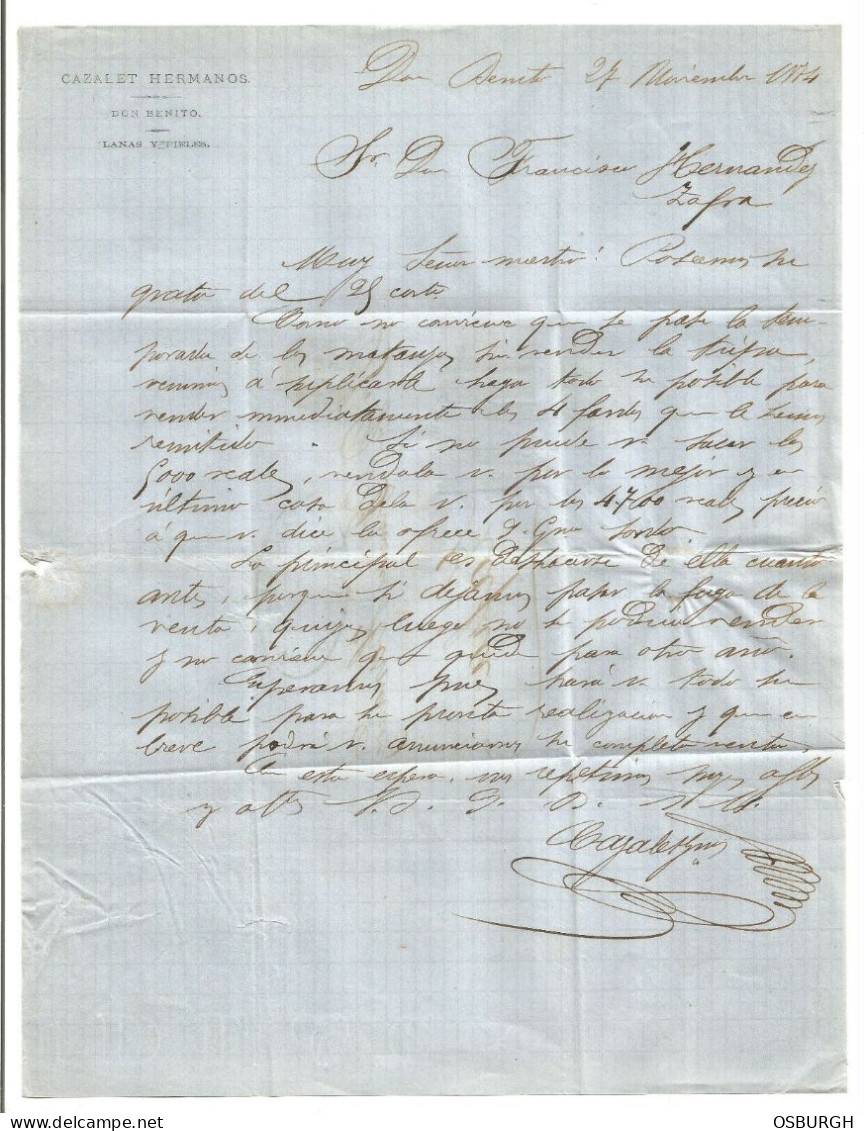 CAZALET HERMANOS.
DON BENITO.
LANAS Y PIELES.
Don Benito 27 Noviembre 1874
Sr. Don Francisco Hernandez
Zafra
Muy Señor nuestro: Poseemos su
grata del 25 corte.
Como no conviene que se pase la tem-
porada de las matanzas sin vender la tripa,
venimos á suplicarle haga todo su posible para
vender immediatamente los 4 fardos que le hemos
remitido. Si no puede v. sacar los
5000 reales, vendala v. por lo mejor y en
último caso dela v. por los 4700 reales precio
á que v. dice la ofrece
La principal es deshacerse de ella cuanto
antes, porque si dejamos pasar la fuga de la
venta, quizas luego no se podria vender
y no conviene que quede para otro año.
Esperamos pues hará v. todo su
posible para su pronta realizacion y que en
breve podrá v. anunciarnos su completa venta.
En esta espera, nos repetimos suyos affos
y attos S. S. Q. B. S. M.
Cazalet Hnos
OSBURGH